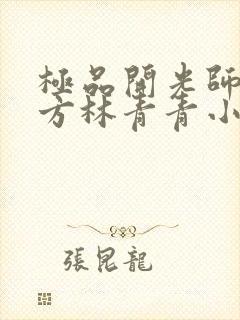 極品開光師
方林青青小
張昆龍